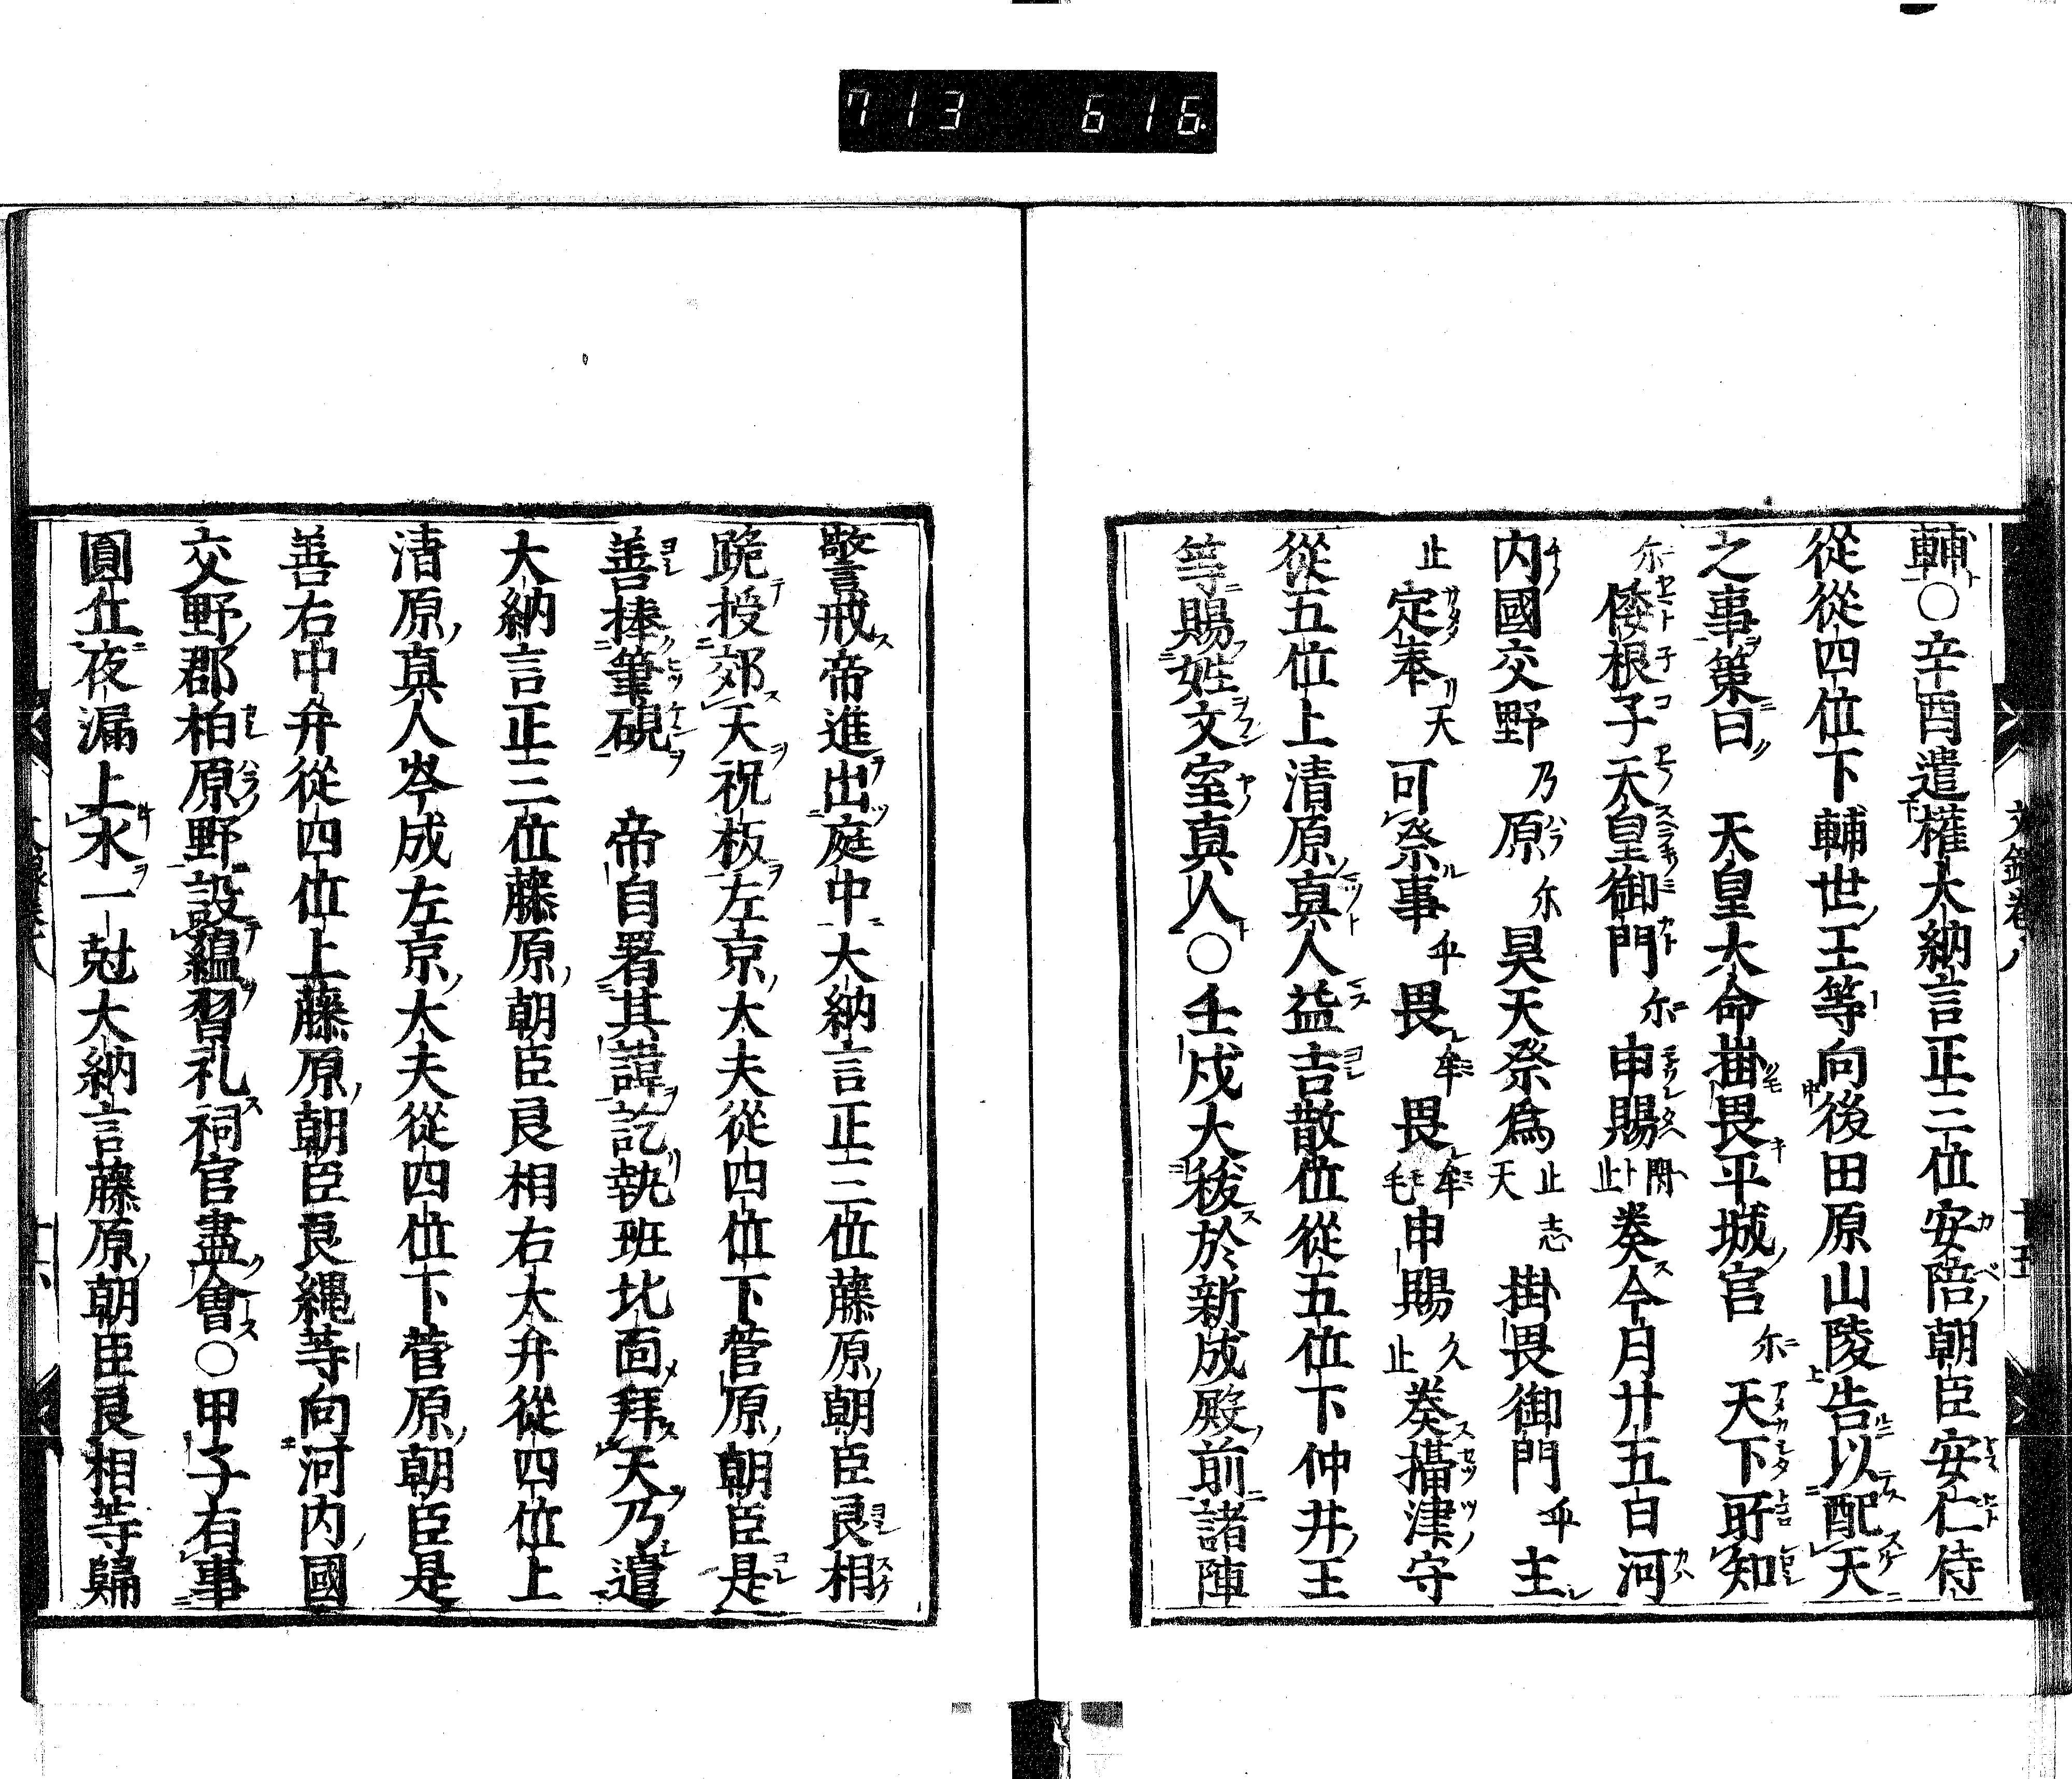 713 616
輔○辛酉遣權大納言正三位安陪朝臣安仁侍
從從四位下輔世王等向後田原山陵告以配天
之事策曰天皇大命掛畏平城官尓天下所知
尓倭根子天皇御門尓申賜閇止奏今月廿五日河
内國交野乃原尓昊天祭爲止天志掛畏御門乎主
止定奉天可祭事乎畏牟畏牟毛申賜久止奏攝津守
從五位上清原真人益吉散位從五位下仲井王
等賜姓文室真人○壬戌大秡於新成殿前諸陣
警戒帝進出庭中大納言正三位藤原朝臣良相
跪授郊天祝板左京大夫從四位下菅原朝臣是
善捧筆硯帝自署其諱訖執班北面拜天乃遣
大納言正三位藤原朝臣良相右大弁從四位上
清原真人岑成左京大夫從四位下菅原朝臣是
善右中弁從四位上藤原朝臣良縄等向河内國
交野郡柏原野設蕝習礼祠官盡會○甲子有事
圓丘夜漏上水一尅大納言藤原朝臣良相等歸